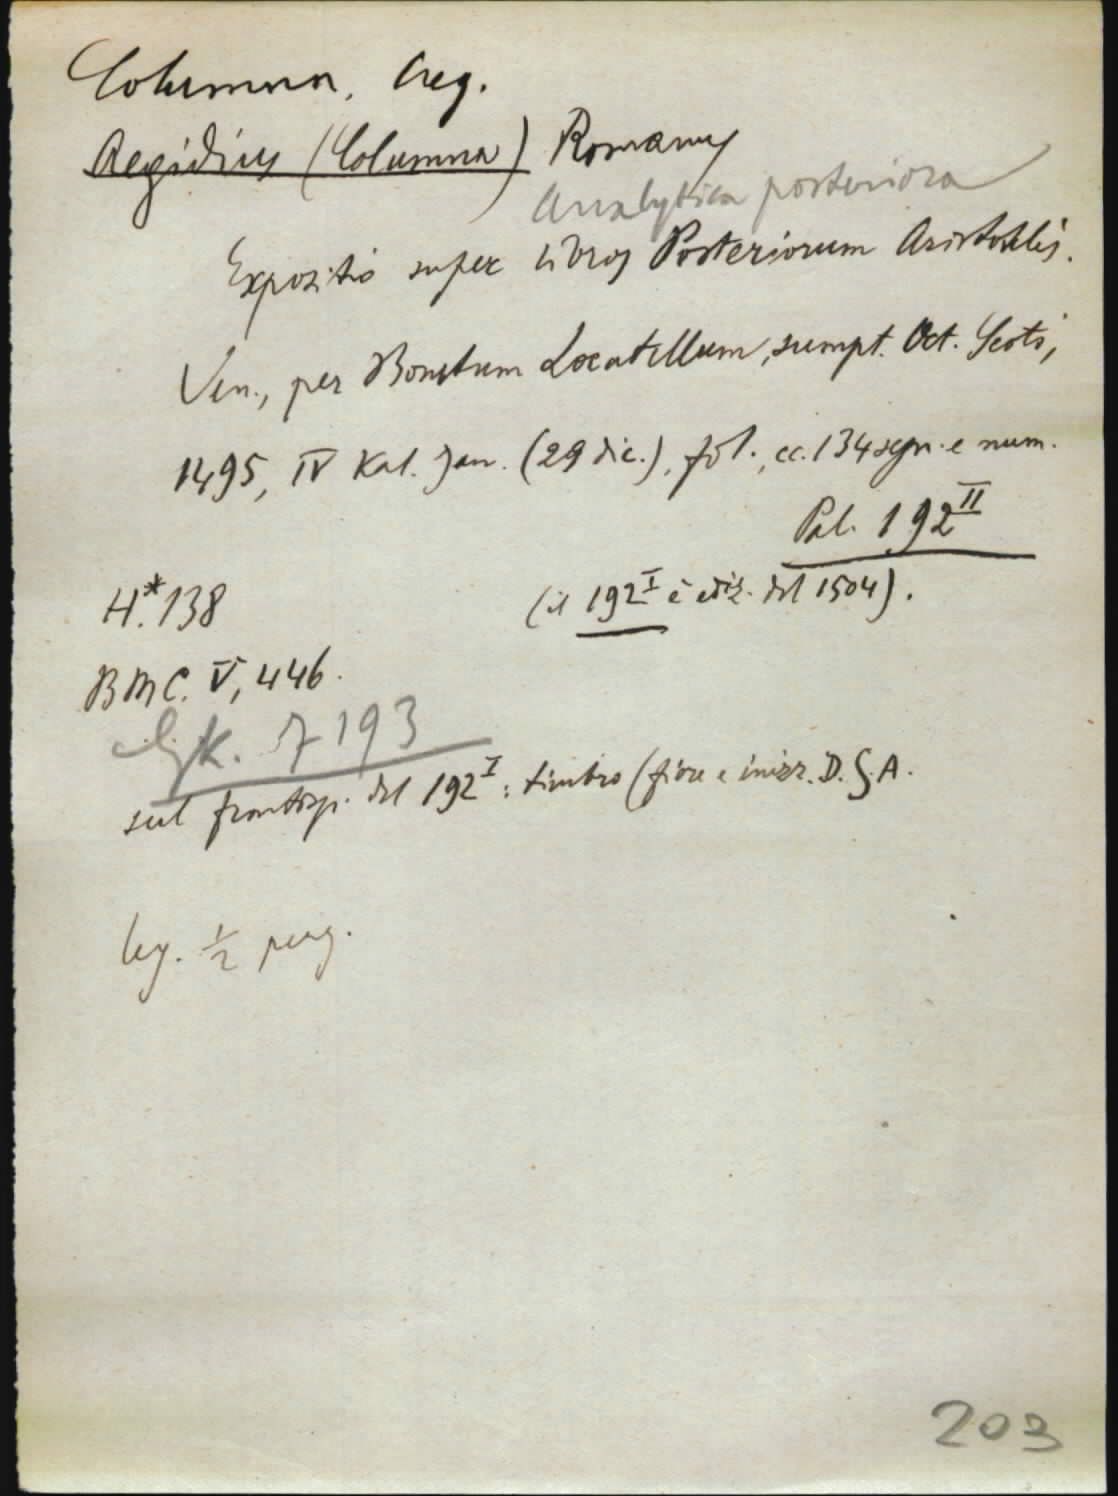 Columna, Aeg.
Aegidius (Columna) Romanus
Analytica posteriora
Expositio super libros Posteriorum Aristotelis.
Ven., per Bonetum Locatellum, sumpt. Oct. Scoti,
1495, IV Kal. Jan. (29 dic.), fol., cc. 134 segn. e num.
Pal. 192 II
(il 192 I è ediz. del 1504).
H.* 138
BMC. V, 446.
Gk. 7193
sul frontisp. del 192 I: timbro (fiore e inizz. D. G. A.
leg. 1/2 perg.
203